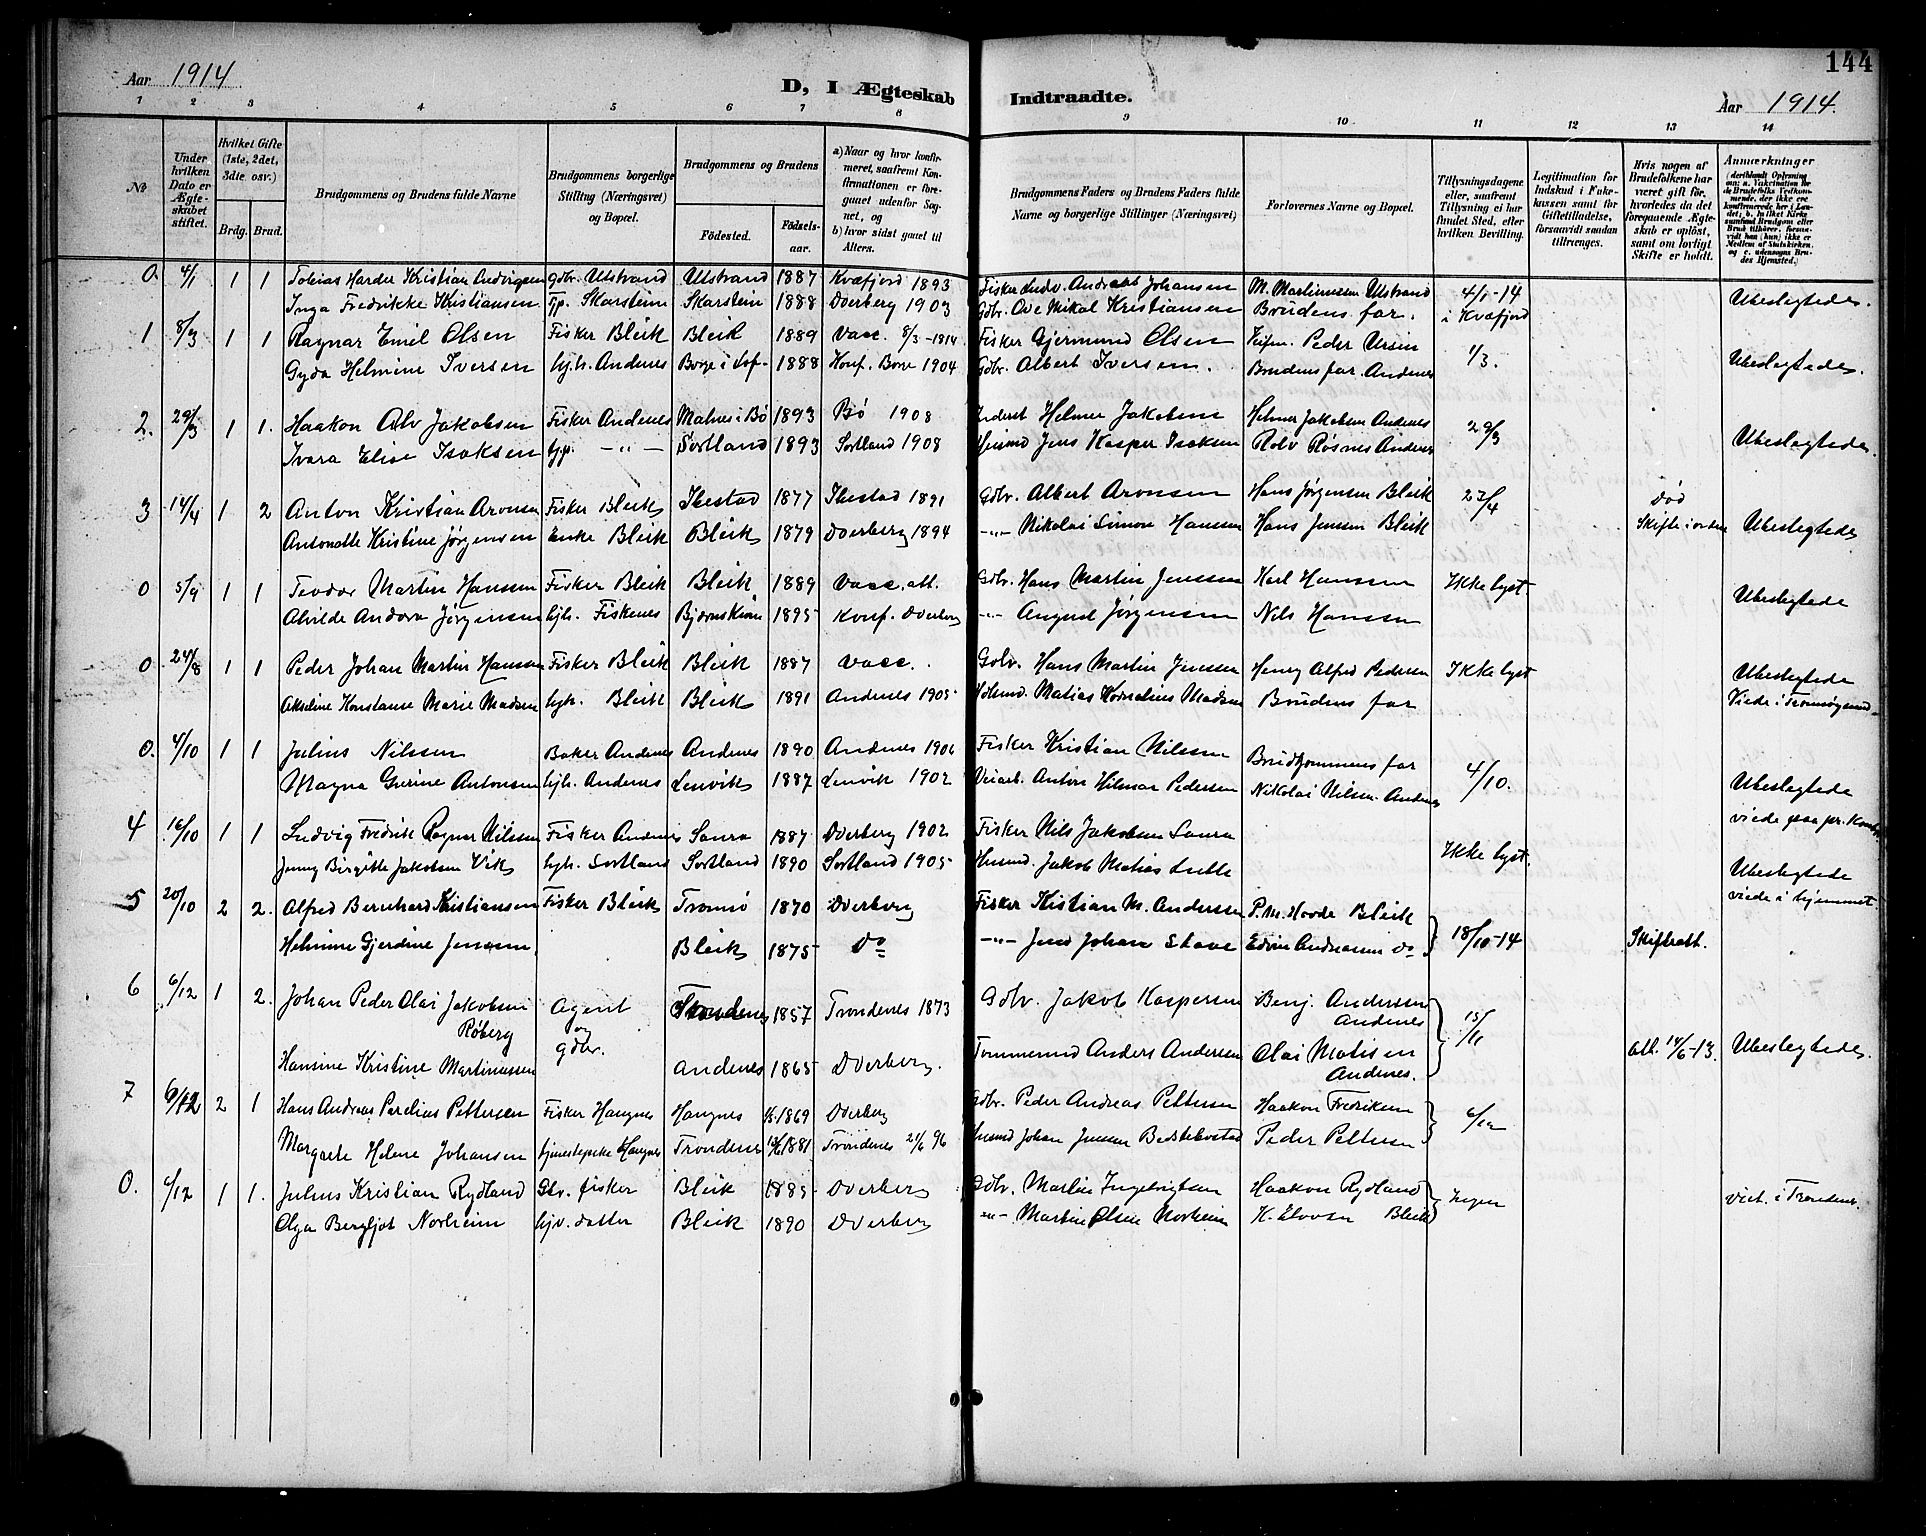 144
Aar 1914
D, I Ægteskab Indtraadte.
Aar 1914.
1 2 3 4 5 6 7 8 9 10 11 12 13 14
No
Under hvilken Dato er Ægteskabet stiftet.
Hvilket Gifte (1ste, 2det, 3die osv.)
Brdg. Brud.
Brudgommens og Brudens fulde Navne
Brudgommens borgerlige Stilling (Næringsvei) og Bopæl.
Brudgommens og Brudens
Födested. Födselsaar.
a) Naar og hvor konfirmeret, saafremt Konfirmationen er foregaaet udenfor Sognet, og
b) hvor sidst gaaet til Alters.
Brudgommens Faders og Brudens Faders fulde Navne og borgerlige Stillinger (Næringsvei)
Forlovernes Navne og Bopæl.
Tillysningsdagene eller, saafremt Tillysning ei har fundet Sted, efter hvilken Bevilling.
Legitimation for Indskud i Enkekassen samt for Giftetilladelse, forsaavidt saadan tiltrænges.
Hvis nogen af Brudefolkene har været gift før, hvorledes da det foregaaende Ægteskab er opløst, samt om lovligt Skifte er holdt.
Anmærkninger
0. 4/1 1 1 Tobias Harder Kristian Ludvigsen gdbr. Utstrand Utstrand 1887 Kvæfjord 1893 Fisker Ludv. Andreas Johansen M. Martinussen Utstrand 4/1-14
Inga Fredrikke Kristiansen Tp. Skarstein Skarstein 1888 Dverberg 1903 Gdbr. Ove Mikal Kristiansen Brudens far. i Kvæfjord Ubeslegtede.
1 8/3 1 1 Ragnar Emil Olsen Fisker Bleik Bleik 1889 Vacc. 8/3-1814 Fisker Gjermund Olsen Peder Ursin 1/3.
Gyda Helmine Iversen hjh. Andenes Borge i Lof. 1888 Konf. Borge 1904 Gdbr. Albert Iversen. Brudens far. Andenes Ubeslegtede.
2. 29/3 1 1. Haakon Alv Jakobsen Fisker Andenes Malnes i Bø 1893 Bø 1908 Inderst Helmer Jakobsen Helmer Jakobsen Andenes 29/3
Ivara Elise Isaksen tjp. -"- Sortland 1893 Sortland 1908 Husmd Jens Kasper Isaksen Rolv Røsnes Andenes Ubeslegtede.
3 14/4 1 2 Anton Kristian Aronsen Fisker Bleik Ibestad 1877 Ibestad 1891 Gdbr. Albert Aronsen Hans Jørgensen Bleik 27/4 Død
Antonette Kristine Jørgensen Enke Bleik Bleik 1879 Dverberg 1894 -"- Nikolai Simon Hanssen Hans Jenssen Bleik Skifte i orden Ubeslegtede
0 5/9 1 1 Teodor Martin Hanssen Fisker Bleik Bleik 1889 Vacc. att. Gdbr. Hans Martin Jenssen Karl Hanssen Ikke lyst.
Alvilde Andora Jørgensen hjh. Fiskenes Bjørnskinn 1895 Konf. Dverberg -"- August Jørgensen Nils Hanssen Ubeslegtede
0 24/8 1 1 Peder Johan Martin Hanssen Fisker Bleik Bleik 1887 Vacc. Gdbr. Hans Martin Jenssen Henry Alfred Pedersen Ikke lyst Ubeslegtede
Akseline Konstanse Marie Madsen hjh. Bleik Bleik 1891 Andenes 1905 Husmd. Matias Kornelius Madsen Brudens far Viede i Tromsøysund
0. 4/10 1 1 Julius Nilssen Baker Andenes Andenes 1890 Andenes 1906 Fisker Kristian Nilssen Brudgommens far
Magna Gurine Antonsen hjh. Andenes Lenvik 1887 Lenvik 1902 Veiarb. Anton Hilmar Pedersen Nikolai Nilsen. Andenes 4/10. Ubeslegtede
4 16/10 1 1 Ludvig Fredrik Ragnar Nilssen Fisker Andenes Saura 1887 Dverberg 1902 Fisker Nils Jakobsen Saura viede paa pr. Kontor
Jenny Birgitte Jakobsen Vik hjh. Sortland Sortland 1890 Sortland 1905 Husmd. Jakob Matias Ikke lyst. Ubeslegtede
5 20/10 2 2. Alfred Bernhard Kristiansen Fisker Bleik Tromsø 1870 Dverberg Fisker Kristian M. Anderssen P. M. Hovde Bleik viede i hjemmet.
Helmine Gjerdine Jensen, Bleik 1875 Do -"- Jens Johan Stave Edvin Andreassen do 18/10-14 Skifteatt.
6 6/12 1 2. Johan Peder Olai Jakobsen Røberg Agent og gdbr. Trondenes 1857 Trondenes 1873 Gdbr. Jakob Kaspersen Benj. Anderssen Andenes 15/11
Hansine Kristine Martinussen Andenes 1865 Dverberg. Tømmermd Anders Andersen Olai Matisen Andenes. att. 14/6-13. Ubeslegtede.
7 6/12 2 1 Hans Andreas Parelius Pettersen Fisker Haugnes Haugnes 1869 Dverberg Gdbr. Peder Andreas Pettersen Haakon Fredriksen 6/12
Margrete Helene Johansen tjenestepike Haugnes Trondenes 1881 Trondenes 21/6 96 Husmd Johan Jenssen Peder Pettersen
0. 6/12 1 1. Julius Kristian Rydland Gbr. fisker Bleik 1885 Dverberg Gdbr. Martin Ingebrigtsen Haakon Rydland Ingen viet. i Trondenes.
Olga Bergljot Norheim hjv. datter Bleik 1890 Dverberg -"- Martin Olsen Norheim K. Elvosen Bleik